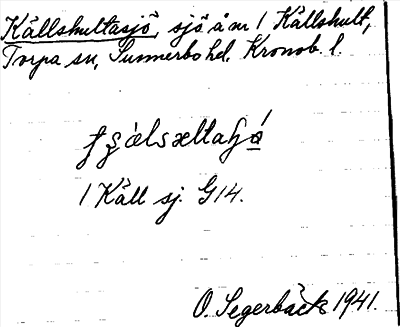 Källshultasjö, sjö å nr 1 Källshult,
Torpa sn, Sunnerbo hd. Kronob. l.
1 Käll sj. G14.
O. Segerbäck 1941.